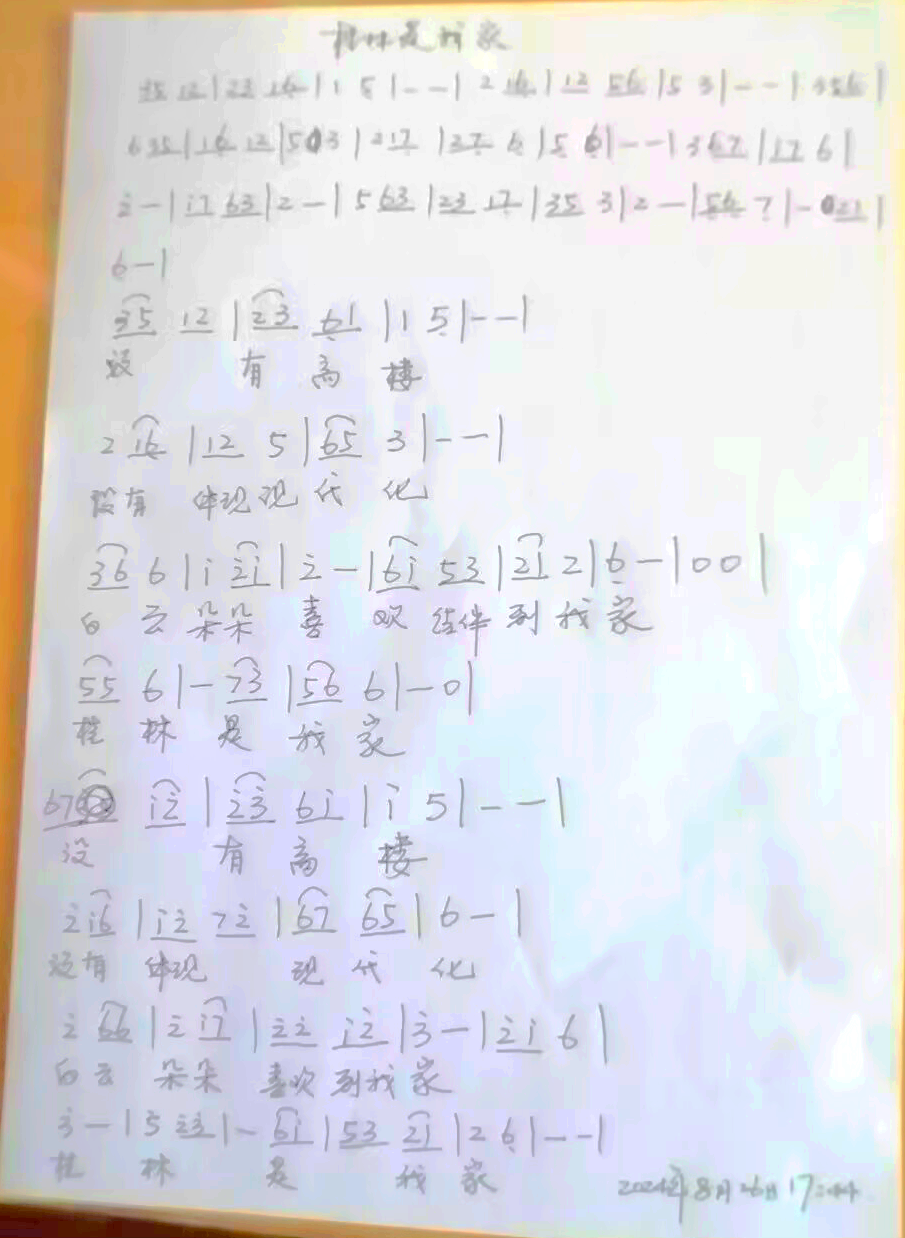 桂林是我家
35 12 | 23 16 | 1 5 | - - | 2 16 | 12 56 | 5 3 | - - | 356 |
6 35 | 16 12 | 5 03 | 217 | 27 6 | 5 6 | - - | 3 67 | 17 6 |
2̇ - | i7 63 | 2 - | 5 63 | 23 17 | 35 3 | 2 - | 56 7 | - 021 |
6 - |
35 12 | 23 61 | 1 5 | - - |
没 有 高 楼
2 16 | 12 5 | 65 3 | - - |
没有 体现现代 化
36 6 | i 2̇i | 2̇ - | 6i 53 | 2i 2 | 6 - | 0 0 |
白 云 朵朵 喜 欢 结伴 到 我 家
55 6 | - 73 | 56 6 | - 0 |
桂 林 是 我 家
67 i2̇ | 2̇3̇ 6i | i 5 | - - |
没 有 高 楼
2̇ i6 | i2̇ 72̇ | 67 65 | 6 - |
没有 体现 现 代 化
2̇ 66 | 2̇ i7 | 2̇2̇ i2̇ | 3̇ - | 2̇i 6 |
白云 朵朵 喜欢 到我 家
3̇ - | 5 2̇3̇ | - 6i | 53 2i | 2 6 | - - |
桂 林 是 我 家
2024年8月26日17:44